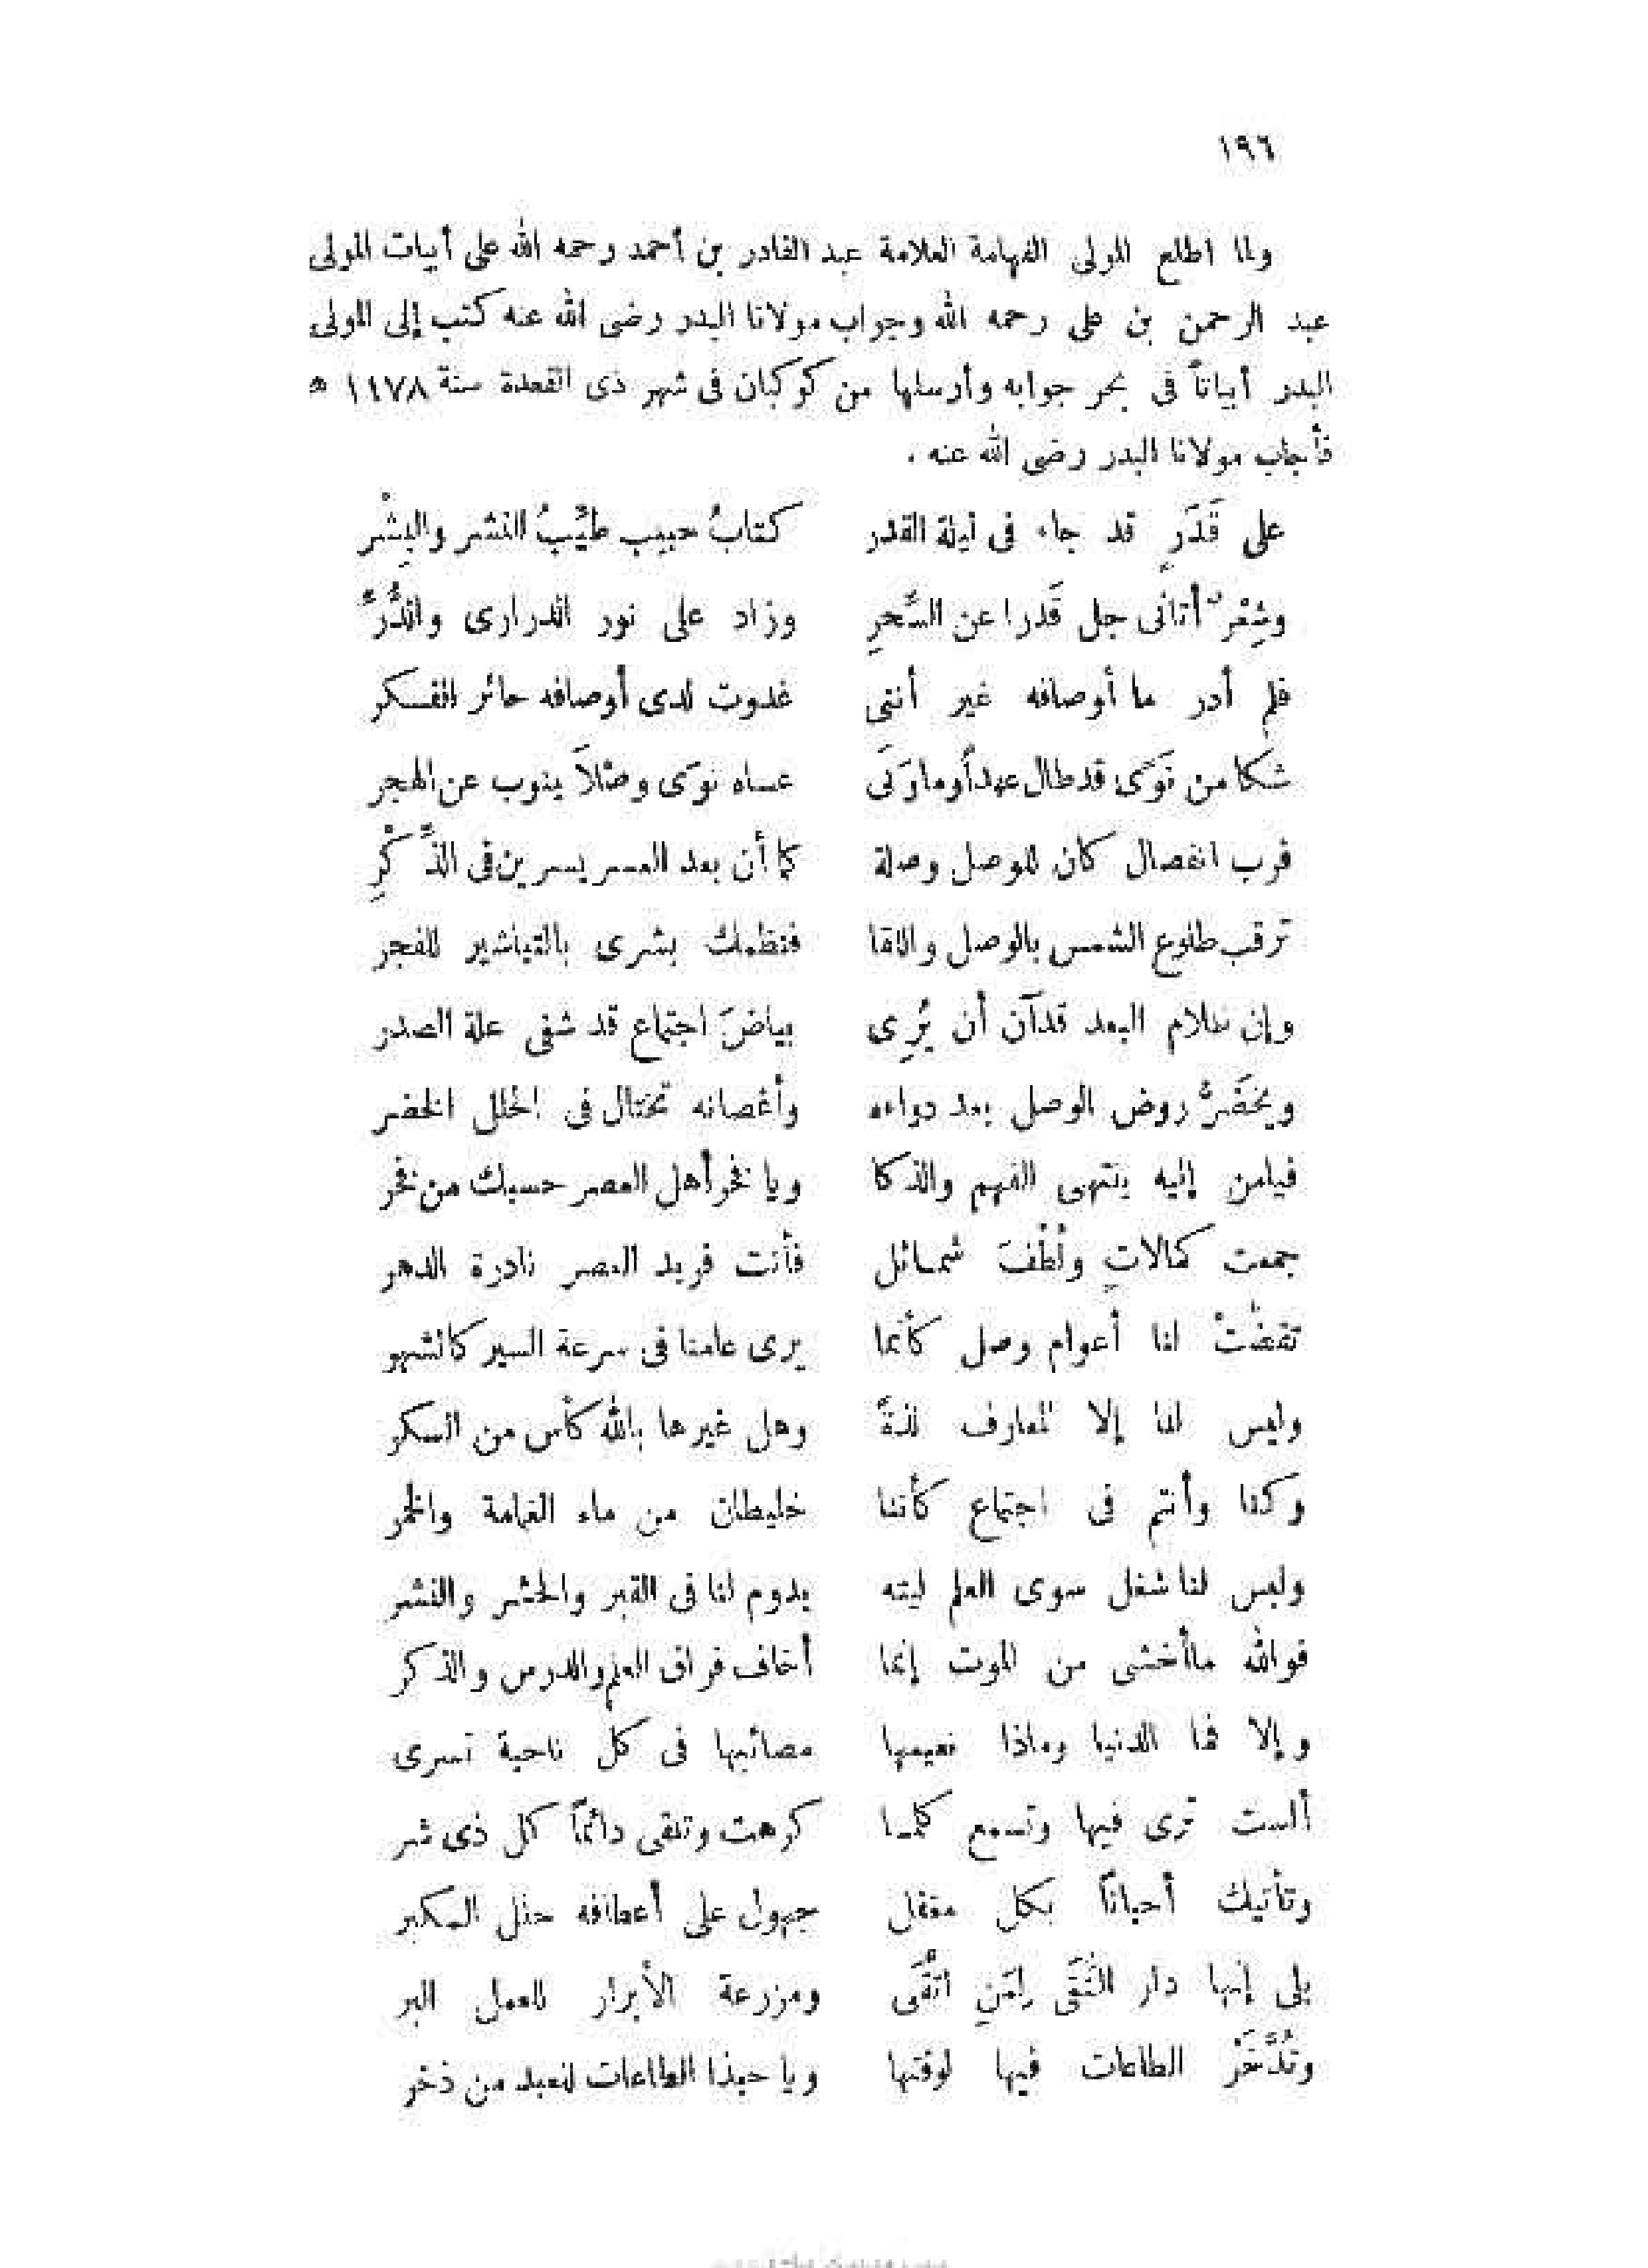 ١٩٦
ولما اطلع المولى الفهامة العلامة عبد القادر بن أحمد رحمه الله على أبيات المولى
عبد الرحمن بن على رحمه الله وجواب مولانا البدر رضى الله عنه كتب إلى المولى
البدر أبياتاً فى بحر جوابه وأرسلها من كوكبان فى شهر ذى القعدة سنة ١١٧٨ ه
فأجاب مولانا البدر رضى الله عنه .
على قَدَرٍ قد جاء فى ليلة القدر كتابُ حبيب طيِّبُ النشر والبِشْر
وشِعْرٌ أتانى جل قَدرا عن السِّحرِ وزاد على نور الدرارى والدُّرِّ
فلم أدر ما أوصافه غير أننى غدوت لدى أوصافه حائر الفسكر
شكا من نَوًى قد طال عهداً وما وَنَى عساه نوَى وصْلاً ينوب عن الهجر
فرب انفصال كان للوصل وصلة كما أن بعد العسر يسرين فى الذِّكْرِ
ترقب طلوع الشمس بالوصل واللقا فنظمك بشرى بالتباشير للفجر
وإن ظلام البعد قد آن أن يُرِى بياضَ اجتماع قد شفى علة الصدر
ويخضَرُّ روض الوصل بعد دواءه وأغصانه تختال فى الحلل الخضر
فيامن إليه ينتهى الفهم والذكا ويا فخر أهل العصر حسبك من فخر
جمعت كمالاتٍ ولُطْفَ شمائل فأنت فريد العصر نادرة الدهر
تقضتْ لنا أعوام وصل كأنما يرى عامنا فى سرعة السير كالشهر
وليس لنا إلا المعارف لذةً وهل غيرها بالله كأس من السكر
وكنا وأنتم فى اجتماع كأننا خليطان من ماء الغمامة والخمر
وليس لنا شغل سوى العلم ليته يدوم لنا فى القبر والحشر والنشر
فوالله ماأخشى من الموت إنما أخاف فراق العلم والدرس والذكر
وإلا فما الدنيا وماذا نعيمها مصائبها فى كل ناحية تسرى
ألست ترى فيها وتسمع كلما كرهت وتلقى دائماً كل ذى شر
وتأتيك أحياناً بكل مغفل جهول على أعطافه حلل الكبر
بلى إنها دار التُّقَى لِمَنِ اتَّقَى ومزرعة الأبرار للعمل البر
وتُدَّخَرْ الطاعات فيها لوقتها ويا حبذا الطاعات للعبد من ذخر